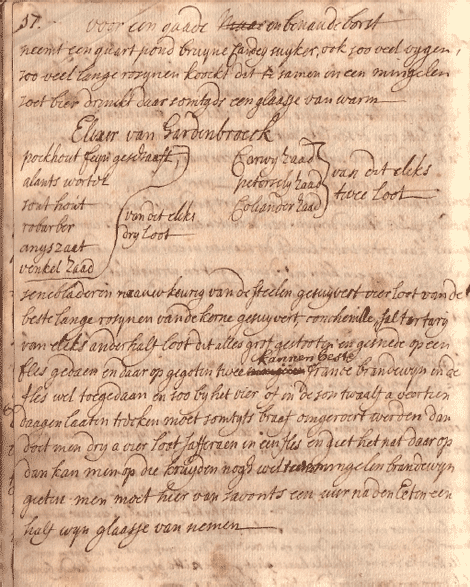 37. voor een quade en benaude borst
neemt een quart pond bruyne candey suyker, ook soo veel vygen,
soo veel lange rosynen koockt dit te samen in een mingelen
soet bier drinckt daar somtyds een glaasse van warm
Elixer van Gardenbroeck
pockhout feyn geschaaft
alants wortel
sout hout
robarber
anys zaat
venkel zaad
van dit elks
dry loot
Carwy zaad
petersely zaad
Coliander zaad
van dit elks
twee loot
senebladeren naauwkeurig van de steelen gesuyvert vier loot van de
beste lange rosynen van de korne gesuyvert, conchenille, sal tartary
van elks anderhalf loot dit alles grof gestooten en gesnede op een
fles gedaen en daar op gegoten twee kannen beste france brandewyn en de
fles wel toegedaan en soo by het vier of in de son twaalf a veertien
daagen laaten trecken moet somtyts braaf omgeroert werden dan
doet men dry a vier loot saffraen in een fles en giet het nat daar op
dan kan men op die kruyden nog wel mingelen brandewyn
gieten men moet hier van savonts een uur na den eeten een
half wyn glaasse van nemen